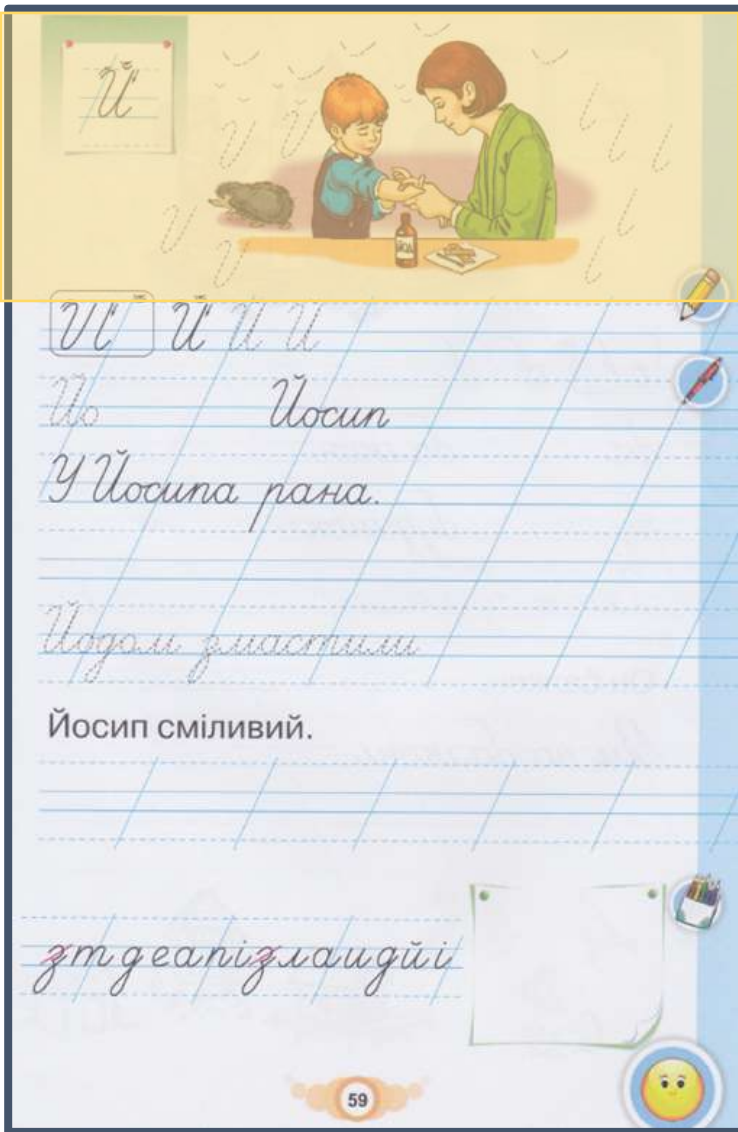 Й
Й Й Й Й
Йо Йосип
У Йосипа рана.
Йодом змастили
Йосип сміливий.
зтдеапізлаидйі
59